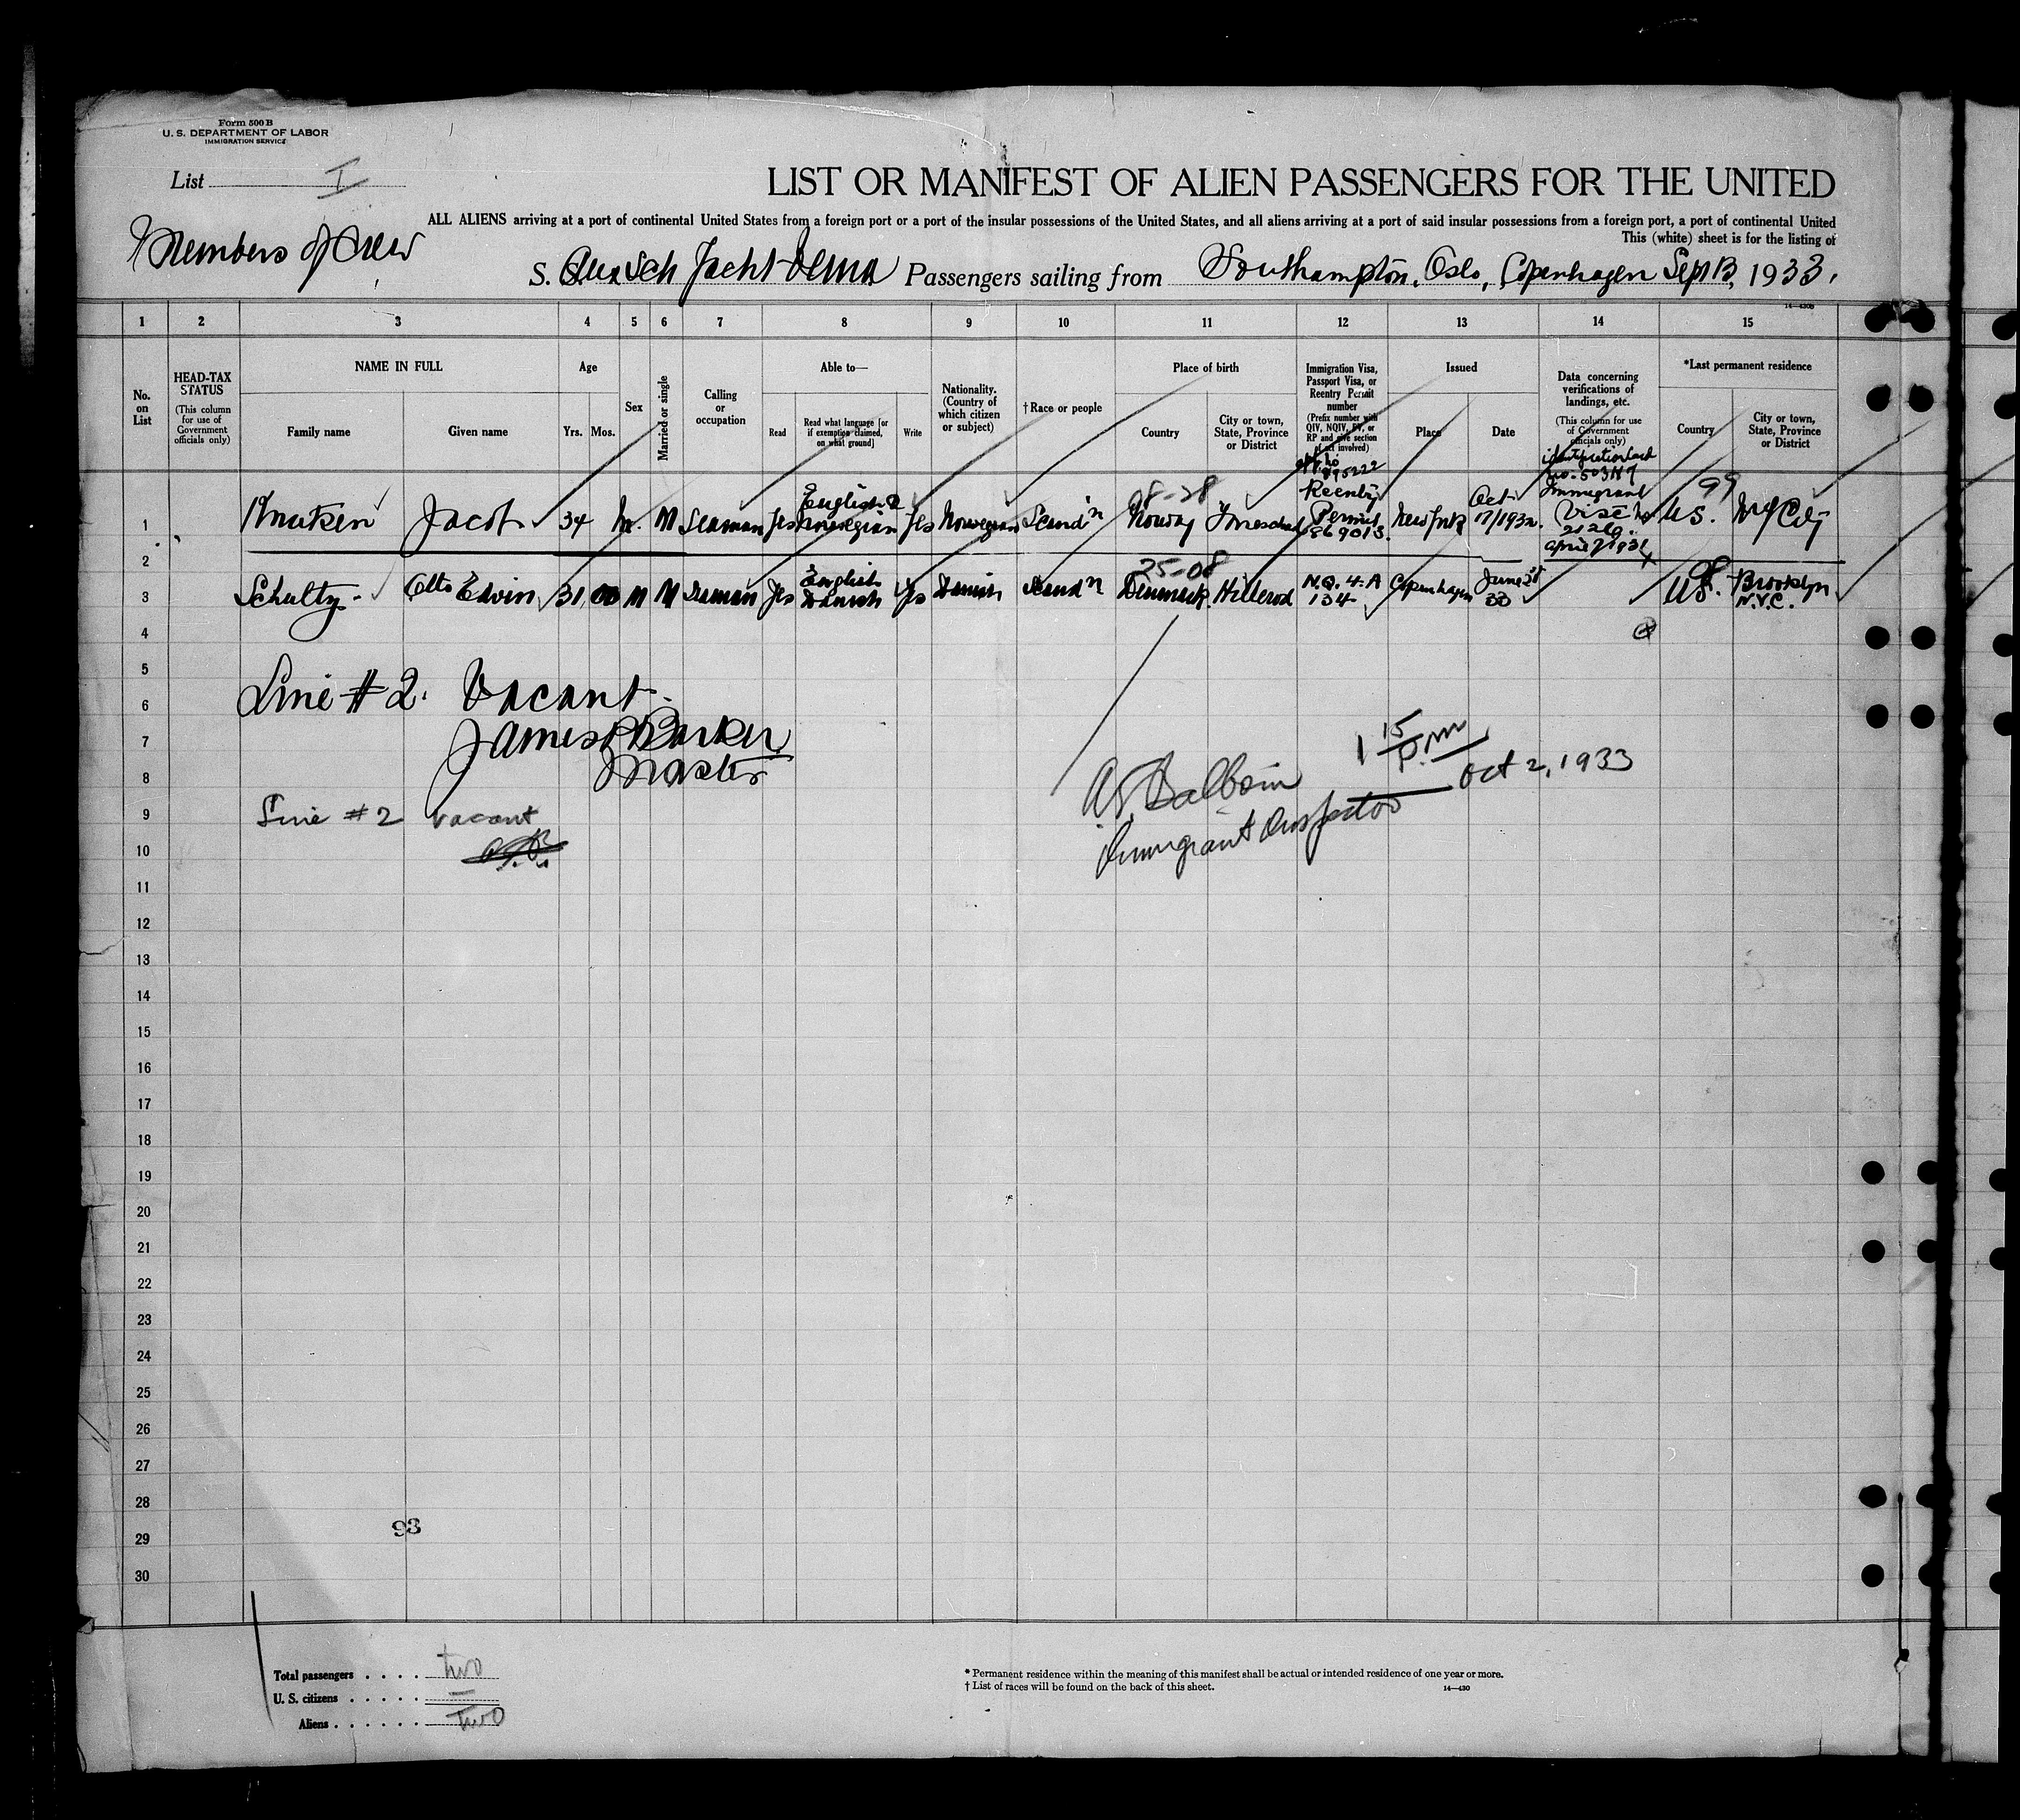 Form 500 B
U. S. DEPARTMENT OF LABOR
IMMIGRATION SERVICE
List I
LIST OR MANIFEST OF ALIEN PASSENGERS FOR THE UNITED
ALL ALIENS arriving at a port of continental United States from a foreign port or a port of the insular possessions of the United States, and all aliens arriving at a port of said insular possessions from a foreign port, a port of continental United
This (white) sheet is for the listing of
Members of Crew
S. Sch Yacht Passengers sailing from Southampton, Oslo, Copenhagen Sept 13, 1933.
14—430B
1 2 3 4 5 6 7 8 9 10 11 12 13 14 15
No. on List
HEAD-TAX STATUS
(This column for use of Government officials only)
NAME IN FULL
Family name
Given name
Age
Yrs. Mos.
Sex
Married or single
Calling or occupation
Able to—
Read
Read what language [or if exemption claimed, on what ground]
Write
Nationality. (Country of which citizen or subject)
†Race or people
Place of birth
Country
City or town, State, Province or District
Immigration Visa, Passport Visa, or Reentry Permit number
(Prefix number with QIV, NQIV, PV, or RP and give section of act involved)
Issued
Place
Date
Data concerning verifications of landings, etc.
(This column for use of Government officials only)
*Last permanent residence
Country
City or town, State, Province or District
1 Knutsen Jacob 34 M. M Seaman Yes English & Norwegian Yes Norwegian Scand'n 08-28 Norway 895222 Reentry Permit 869013. New York Oct 17/1932. Identification Card No. 503117 Immigrant Visa No. 21269 April 7 1931 99 U.S. N.Y. City
2
3 Schultz Otto Edvin 31 00 M M Seaman Yes English Danish Yes Danish Scand'n 25-08 Denmark Hillerod N.Q. 4-A 134 Copenhagen June 33 U.S. Brooklyn N.Y.C.
4
5
6 Line #2. Vacant.
7 James P Barker
8 Master
1 15 p.m Oct 2, 1933
9 Line #2 vacant
Immigrant Inspector
10
11
12
13
14
15
16
17
18
19
20
21
22
23
24
25
26
27
28
93
29
30
Total passengers . . . . two
U. S. citizens . . . . . —
Aliens . . . . . . two
* Permanent residence within the meaning of this manifest shall be actual or intended residence of one year or more.
† List of races will be found on the back of this sheet.
14—430